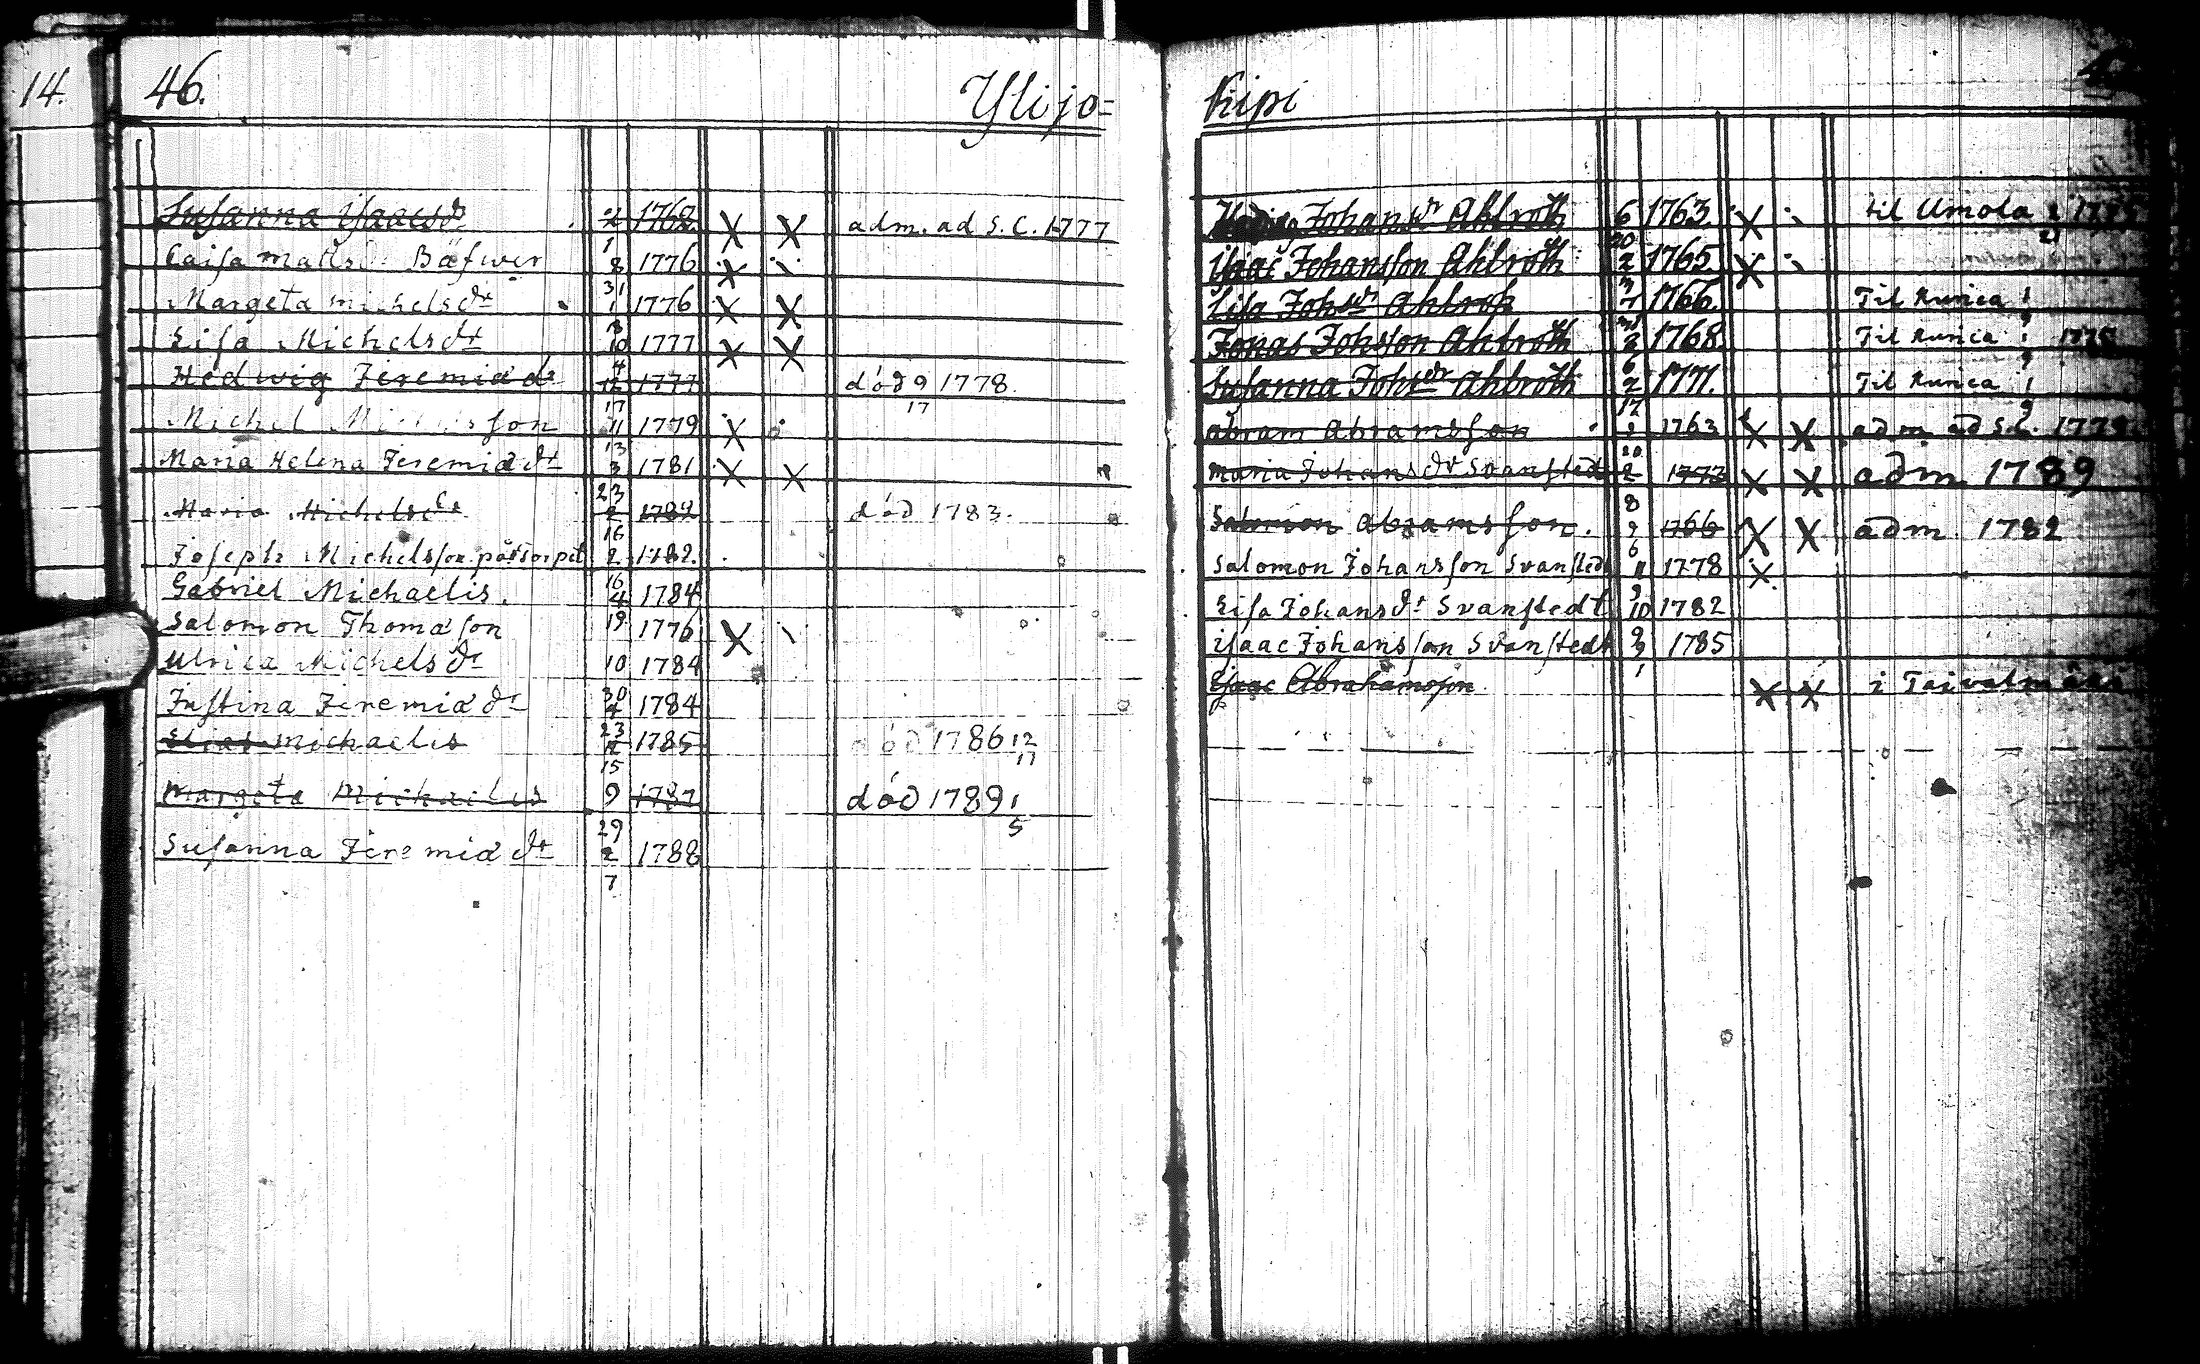 14.
46. Ylijo=
Susanna Isaacsdr 2 1762 X X adm. ad S. C. 1777
1
Caisa Matts Bäfwer 8 1776 X
31
Margeta Michelsdr 1 1776 X X
8
Lisa Michelsdr 10 1777 X X
4
Hedwig Jeremiædr 12 1777 död 9 1778.
17 17
Michel son 11 1779 X
13
Maria Helena Jeremiædr 3 1781 X X
23
Maria Michelsdr 2 1782 död 1783.
16
Joseph Michelsson 2 1782.
16
Gabriel Michaelis. 4 1784
19
Salomon Thomæson 1776 X
Ulrica Michelsdr 10 1784
30
Justina Jeremiædr 4 1784
23
Elias Michaelis 12 1785 död 1786 12
15 17
Margeta Michaelis 9 1787 död 1789 1
29 5
Susanna Jeremiædr 2 1788
7
Kipi
Johansdr Ahlroth 6 1763 X til Umola
20 21
Isaac Johansson Ahlroth 2 1765 X
3
Lisa Johsdr Ahlroth 7 1766. Til Runica 1
9
Jonas Johsson Ahlroth 2 1768 Til Runica 1
6 9
Susanna Johsdr Ahlroth 2 1771. Til Runica 1
17 9
Abram Abramsson 1763 X X adm ad S.C. 1778
20
Maria Johansdr Svanstedt 2 1773 X X adm 1789
8
Salomon Abramsson. 9 1766 X X adm. 1782
6
Salomon Johansson Svanstedt 11 1778 X
9
Lisa Johansdr Svanstedt 10 1782
Isaac Johansson Svanstedt 9 1785
1
Isaac Abrahamsson X X i